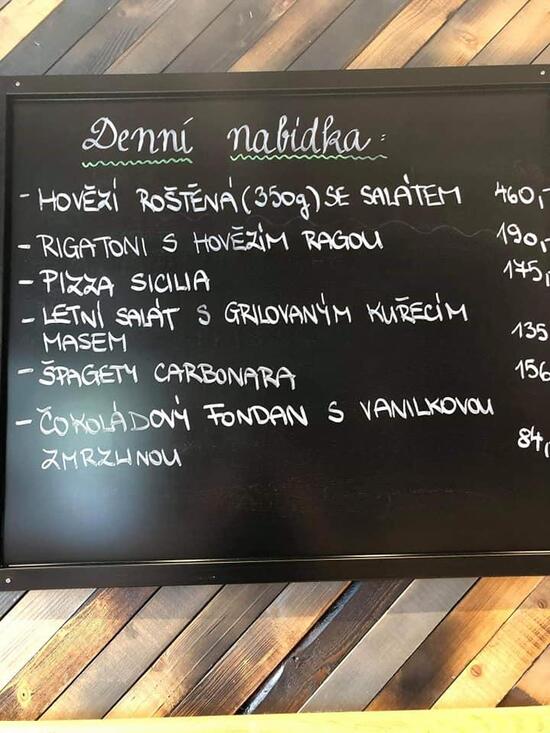 Denní nabídka:
- HOVĚZÍ ROŠTĚNÁ (350g) SE SALÁTEM 460,-
- RIGATONI S HOVĚZÍM RAGOU 190,-
- PIZZA SICILIA 175,-
- LETNÍ SALÁT S GRILOVANÝM KUŘECÍM
MASEM 135
- ŠPAGETY CARBONARA 156
- ČOKOLÁDOVÝ FONDAN S VANILKOVOU
ZMRZLINOU 84,-